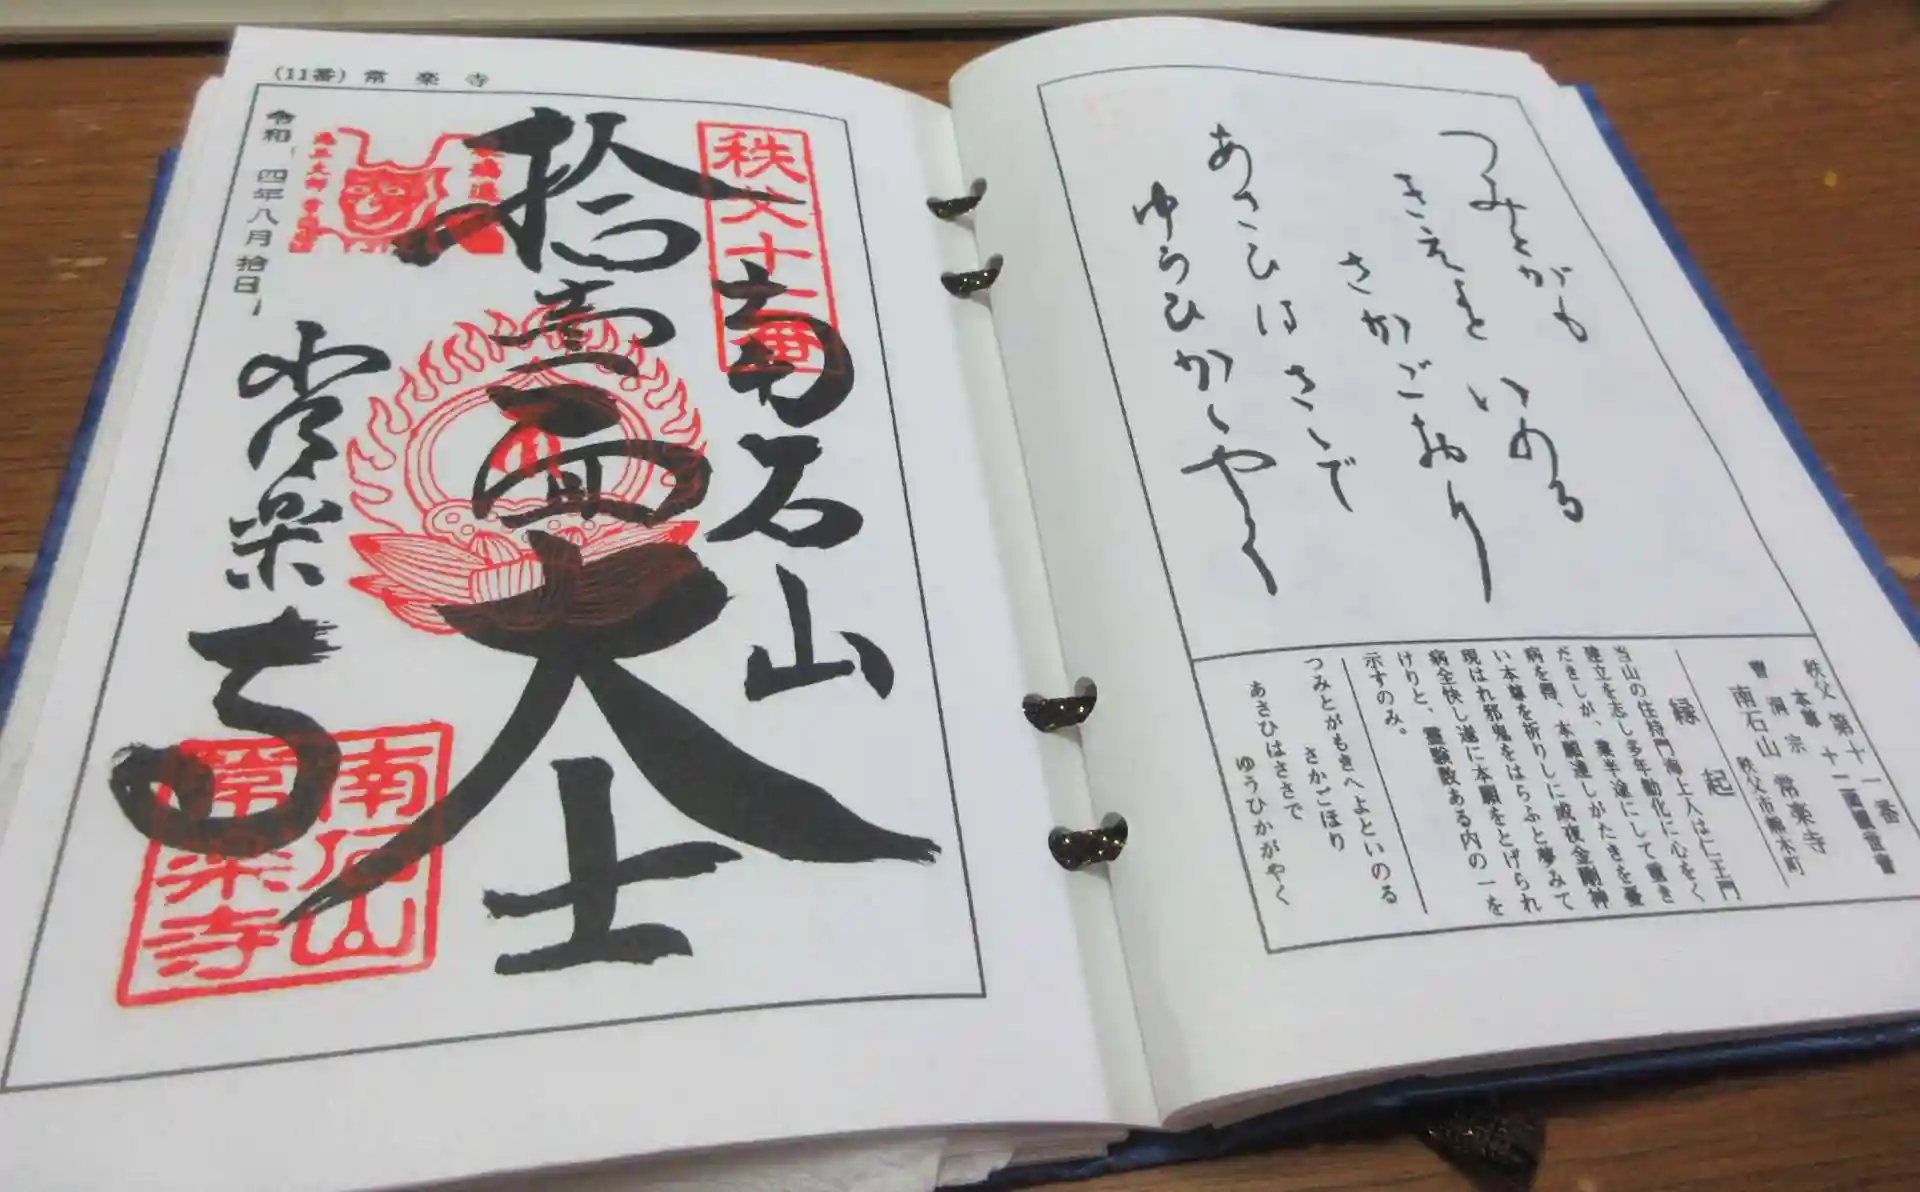 (11番) 常楽寺
令和 四年八月拾日
秩父十一番
南石山
拾壱面大士
常楽寺
南石山
常楽寺
つみとがも
きえよと いのる
さかごおり
あさひは さゝで
ゆうひかゞやく
秩父 第十一番
本尊 十一面観世音
曹洞宗
南石山 常楽寺
秩父市熊木町
縁起
当山の住持門海上人はに王門
建立を志し多年勧化に心をく
だきしが、業半途にして重き
病を得、本願達しがたきを憂
い本尊を祈りしに或夜金剛神
現はれ邪鬼をはらふと夢みて
病全快し遂に本願をとげられ
けりと、霊験数ある内の一を
示すのみ。
つみとがもきへよといのる
さかごほり
あさひはささで
ゆうひかがやく